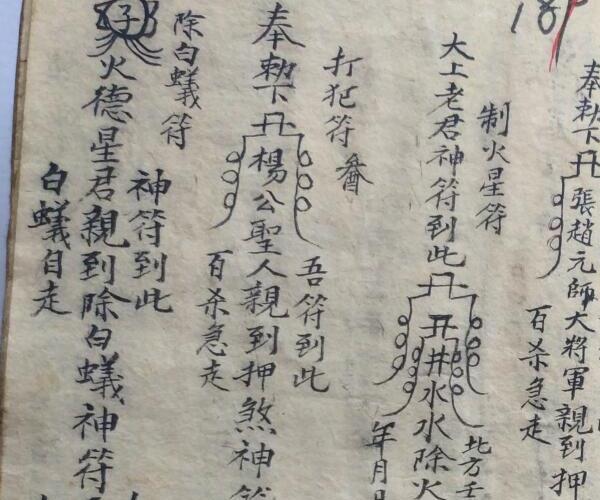 奉勅下
張趙元帥大將軍親到押
百杀急走
制火星符
太上老君神符到此
井水水除火
北方壬
年月日
打犯符
奉勅下
楊公聖人親到押煞神符
吾符到此
百杀急走
除白蟻符
火德星君親到除白蟻神符
神符到此
白蟻自走